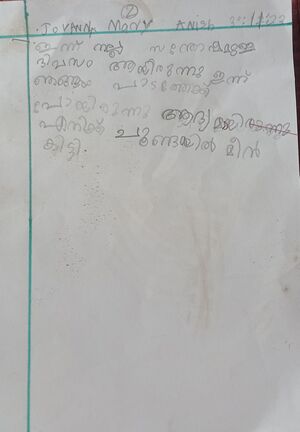 ②
JOVANNA MARY ANISH
ഇന്ന് നല്ല സന്തോഷമുള്ള
ദിവസം ആയിരുന്നു ഇന്ന്
ഞങ്ങള് പാടത്തേക്ക്
പോയിരുന്നു ആദ്യ
എനിക്ക് ചൂണ്ടയിൽ മീൻ
കിട്ടി.